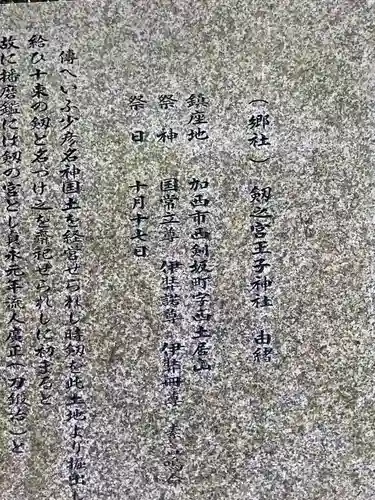 (郷社) 剱之宮王子神社 由緒
鎮座地 加西市西剣坂町字西土居山
祭神 国常立尊 伊弉諾尊 伊弉冊尊 素
祭日 十月十七日
傳へいふ少彦名神国土を経営せられし時剱を此土地より掘出し
給ひ十束の剱と名つけ之を齋祀せられしに初まると
故に播磨鑑には剱の宮とし貞永元年流人廣正(刀鍛冶)と